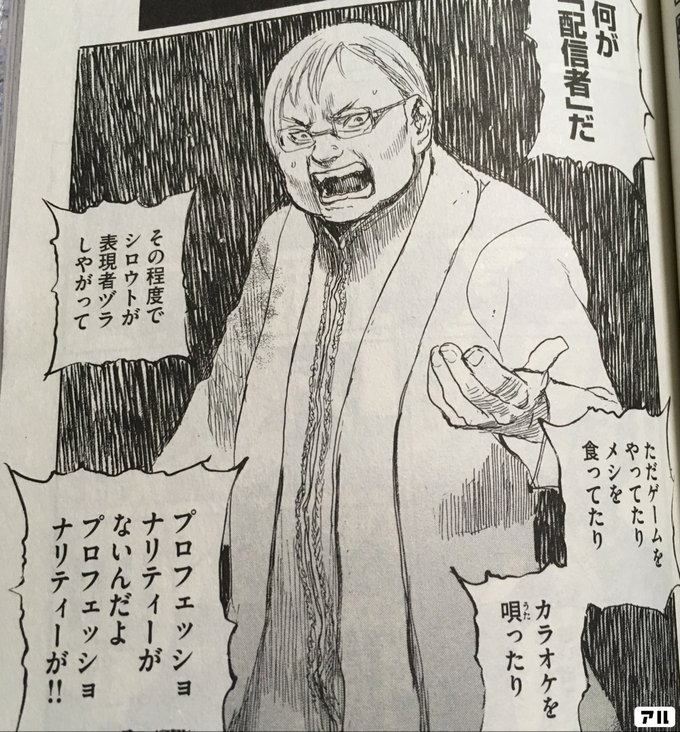 何が
「配信者」だ
ただゲームを
やってたり
メシを
食ってたり
カラオケを
唄ったり
うた
その程度で
シロウトが
表現者ヅラ
しやがって
プロフェッショ
ナリティーが
ないんだよ
プロフェッショ
ナリティーが!!
アル